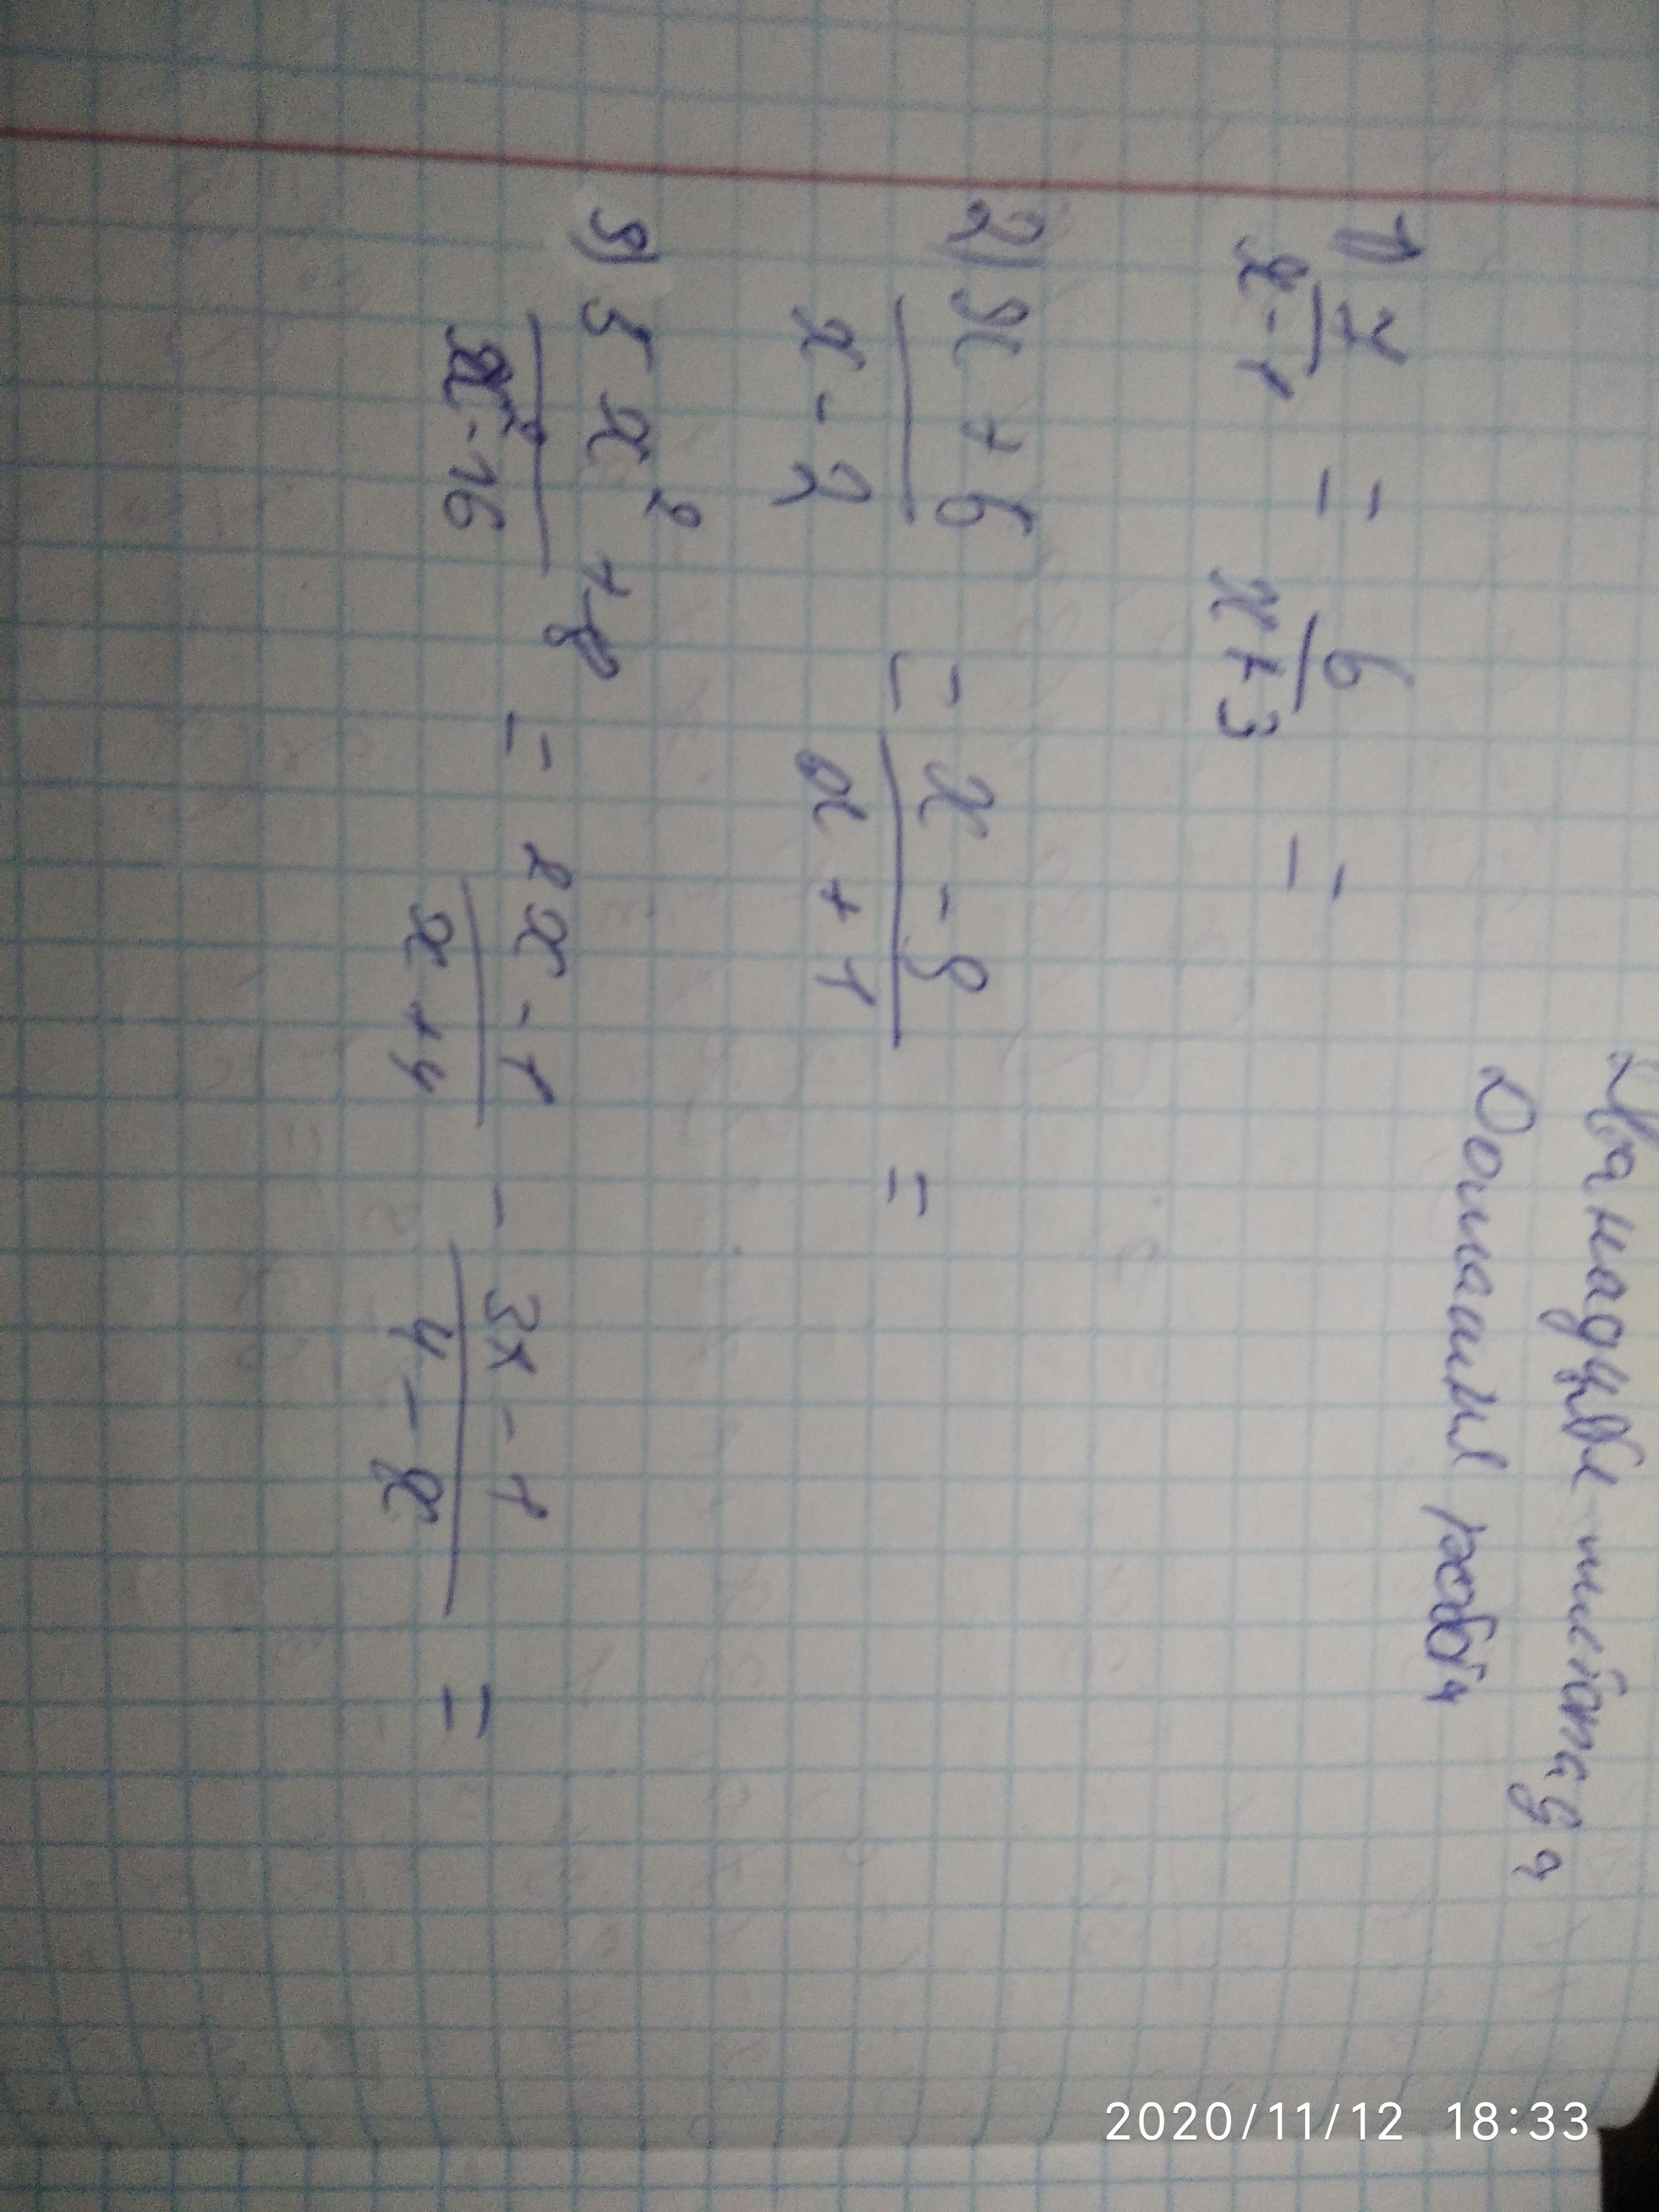 Дванадцяте листопада
Домашня робота
1) 7/x-1 = 6/x+3 =
2) x+6/x-2 = x-9/x+1 =
3) 5x²+8/x²-16 = 2x-1/x+4 - 3x-1/4-x =
2020/11/12 18:33